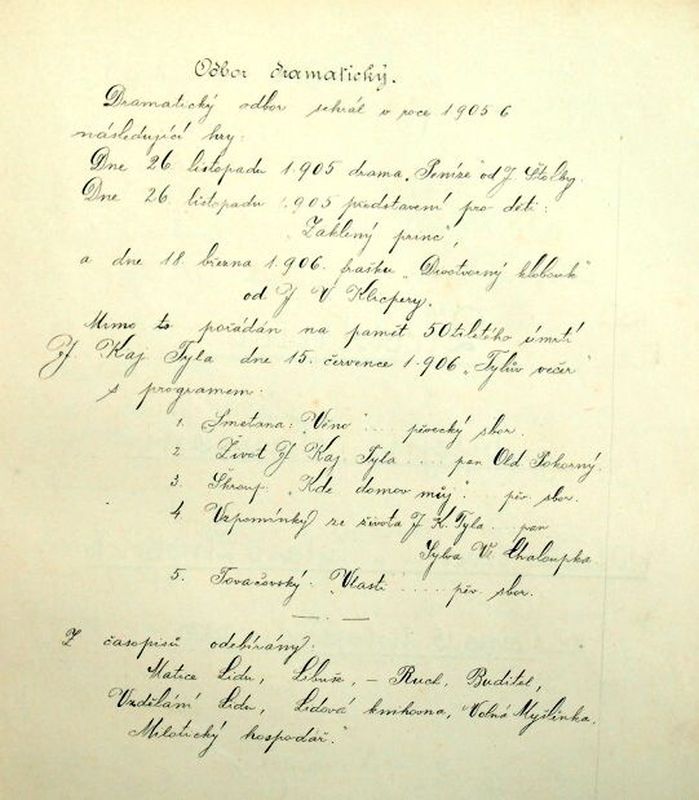 Odbor dramatický.
Dramatický odbor sehrál v roce 1905 6
následující hry:
Dne 26 listopadu 1.905 drama „Peníze" od J. Štolby.
Dne 26. listopadu 1.905 představení pro děti:
„Zakletý princ",
a dne 18. března 1.906. frašku „Divotvorný klobouk"
od J V Klicpery.
Mimo to pořádán na paměť 50tiletého úmrtí
J. Kaj Tyla dne 15. července 1.906 „Tylův večer"
s programem:
1. Smetana: „Věno" .... pěvecký sbor.
2 Život J Kaj Tyla .... pan Old. Pokorný.
3. Škroup: „Kde domov můj". pěv. sbor.
4 Vzpomínky ze života J. K. Tyla... pan
Sylva Vl. Chaloupka
5. Tovačovský. „Vlasti" .... pěv. sbor.
Z časopisů odebírány:
Matice Lidu, Libuše, – Ruch, Buditel,
Vzdělání Lidu, Lidová knihovna, Volná Myšlénka,
Milotický hospodář."